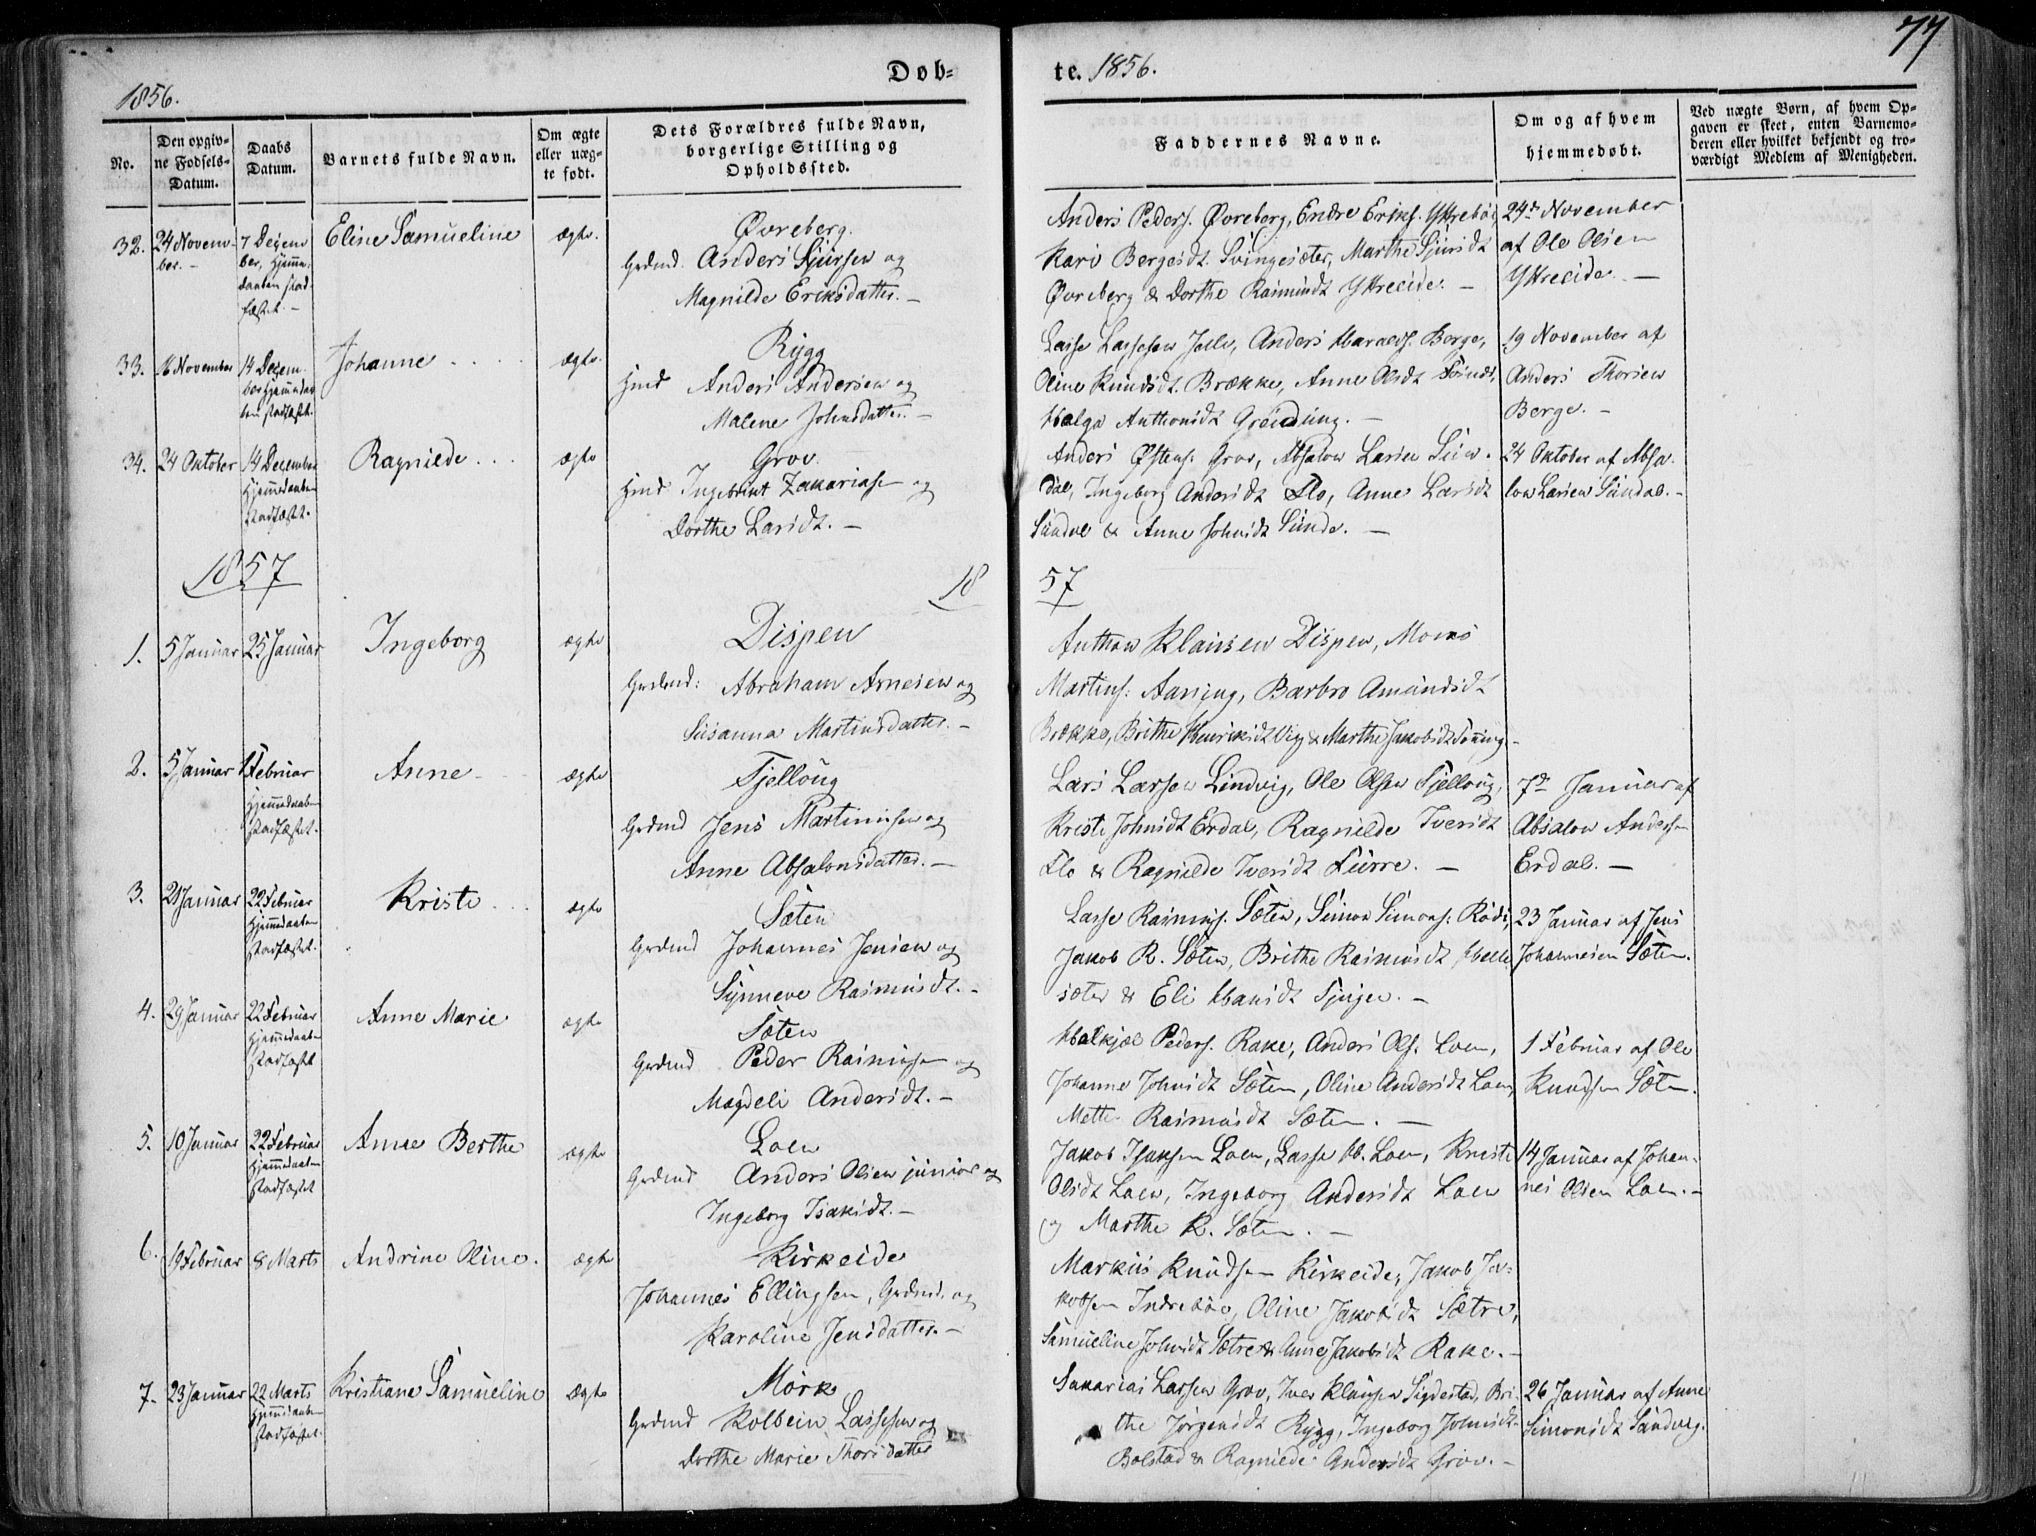 77
1856.
Døb=
te. 1856.
No.
Den opgiv-
ne Fødsels-
Datum.
Daabs
Datum.
Barnets fulde Navn.
Om ægte
eller uæg-
te født.
Dets Forældres fulde Navn,
borgerlige Stilling og
Opholdssted.
Faddernes Navne.
Om og af hvem
hjemmedøbt.
Ved uægte Børn, af hvem Op-
gaven er skeet, enten Barnemo-
deren eller hvilket bekjendt og tro-
værdigt Medlem af Menigheden.
32. 24 Novem-
ber. -
7 Decem
ber, Hjemme
daaben stad
fæstet. -
Eline Samueline
ægte.
Øvreberg.
Grdmd. Anders Sjursen og
Magnilde Eriksdatter. -
Anders Peders. Øvreberg, Endre Eriks. Yttrebø,
Kari Bergesdt. Svingesæter, Marthe Sjursdt
Øvreberg & Dorthe Rasmusdt Yttreeide. -
24de November
af Ole Olsen
Yttreeide. -
33. 16 November
14 Decem
ber Hjemmedaa
ben stadfæstet.
Johanne
ægte.
Rygg
Hmd Anders Andersen og
Malene Johnsdatter. -
Lasse Lassesen Berge,
Oline Knudsdt. Brække, Anne Olsdt
Anthonidt -
19 November af
Anders Thorsen
Berge. -
34. 24 Oktober
14 December
Hjemmedaaben
stadfæstet.
Ragnilde
ægte
Grov.
Hmd Ingebrigt Zakariasen og
Dorthe Larsdt. -
Anders Østens. Grov, Absalon Larsen Sun-
dal, Ingeborg Andersdt Flo, Anne Larsdt
Sundal & Anne Johnsdt Sunde. -
24 Oktober af Absa-
lon Larsen Sundal. -
1857
18
57
1. 5 Januar
25 Januar
Ingeborg
ægte
Dispen
Grdmd: Abraham Arnesen og
Susanna Martinsdatter. -
Anthon Klausen Dispen, Mons
Martins: Aaning, Barbro Amundsdt
Brække, Brithe Henriksdt Vig & Marthe Jakobsdt Toning. -
2. 5 Januar
1 Februar
Hjemmedaaben
stadfæstet.
Anne
ægte
Tjelloug
Grdmd Jens Martinussen og
Anne Absalonsdatter. -
Lars Larsen Lindvig, Ole Olsen Tjelloug,
Kristi Johnsdt Erdal, Ragnilde Iversdt
Flo & Ragnilde Iversdt Furre. -
7de Januar af
Absalon Andersen
Erdal. -
3. 21 Januar
22 Februar
Hjemmedaaben
stadfæstet.
Kristi
ægte
Sæten
Grdmd Johannes Jensen og
Synneve Rasmusdt. -
Lasse Rasmus. Sæten, Simon Simons: Røds,
Jakob R. Sæten, Brithe Rasmusdt Helle
sæter & Eli Hansdt Tjugen. -
23 Januar af Jens
Johannesen Sæten.
4. 29 Januar
22 Februar
Hjemmedaaben
stadfæstet
Anne Marie
ægte
Sæten
Grdmd Peder Rasmusen og
Magdeli Andersdt. -
Halkjæl Peders. Rake, Anders Ols. Loen,
Johanne Johnsdt Sæten, Oline Andersdt Loen,
Mette Rasmusdt Sæten. -
1 Februar af Ole
Knudsen Sæten.
5. 10 Januar
22 Februar
Hjemmedaaben
stadfæstet
Anne Berthe
ægte
Loen
Grdmd Anders Olsen junior og
Ingeborg Isaksdt. -
Jakob Isaksen Loen, Lasse H. Loen, Kristi
Olsdt Loen, Ingeborg Andersdt Loen
og Marthe R. Sæten. -
14 Januar af Johan-
nes Olsen Loen. -
6. 19 Februar
8 Marts
Andrine Oline.
ægte
Kirkeide
Johannes Ellingsen, Grdmd. og
Karoline Jensdatter. -
Markus Knudsen Kirkeide, Jakob Ja-
kobsen Indrebøe, Oline Jakobsdt Sætre,
Samueline Johnsdt Sætre & Anne Jakobsdt Rake. -
7. 23 Januar
22 Marts
Hjemmedaaben
stadfæstet.
Kristiane Samueline
ægte
Mørk
Grdmd Kolbein Lassesen og
Dorthe Marie Thorsdatter
Sakarias Larsen Grov, Iver Klausen Sigdestad, Bri-
the Jørgensdt Rygg, Ingeborg Johnsdt
Bolstad & Ragnilde Andersdt Grov. -
26 Januar af Anne
Simonsdt Sandvig.